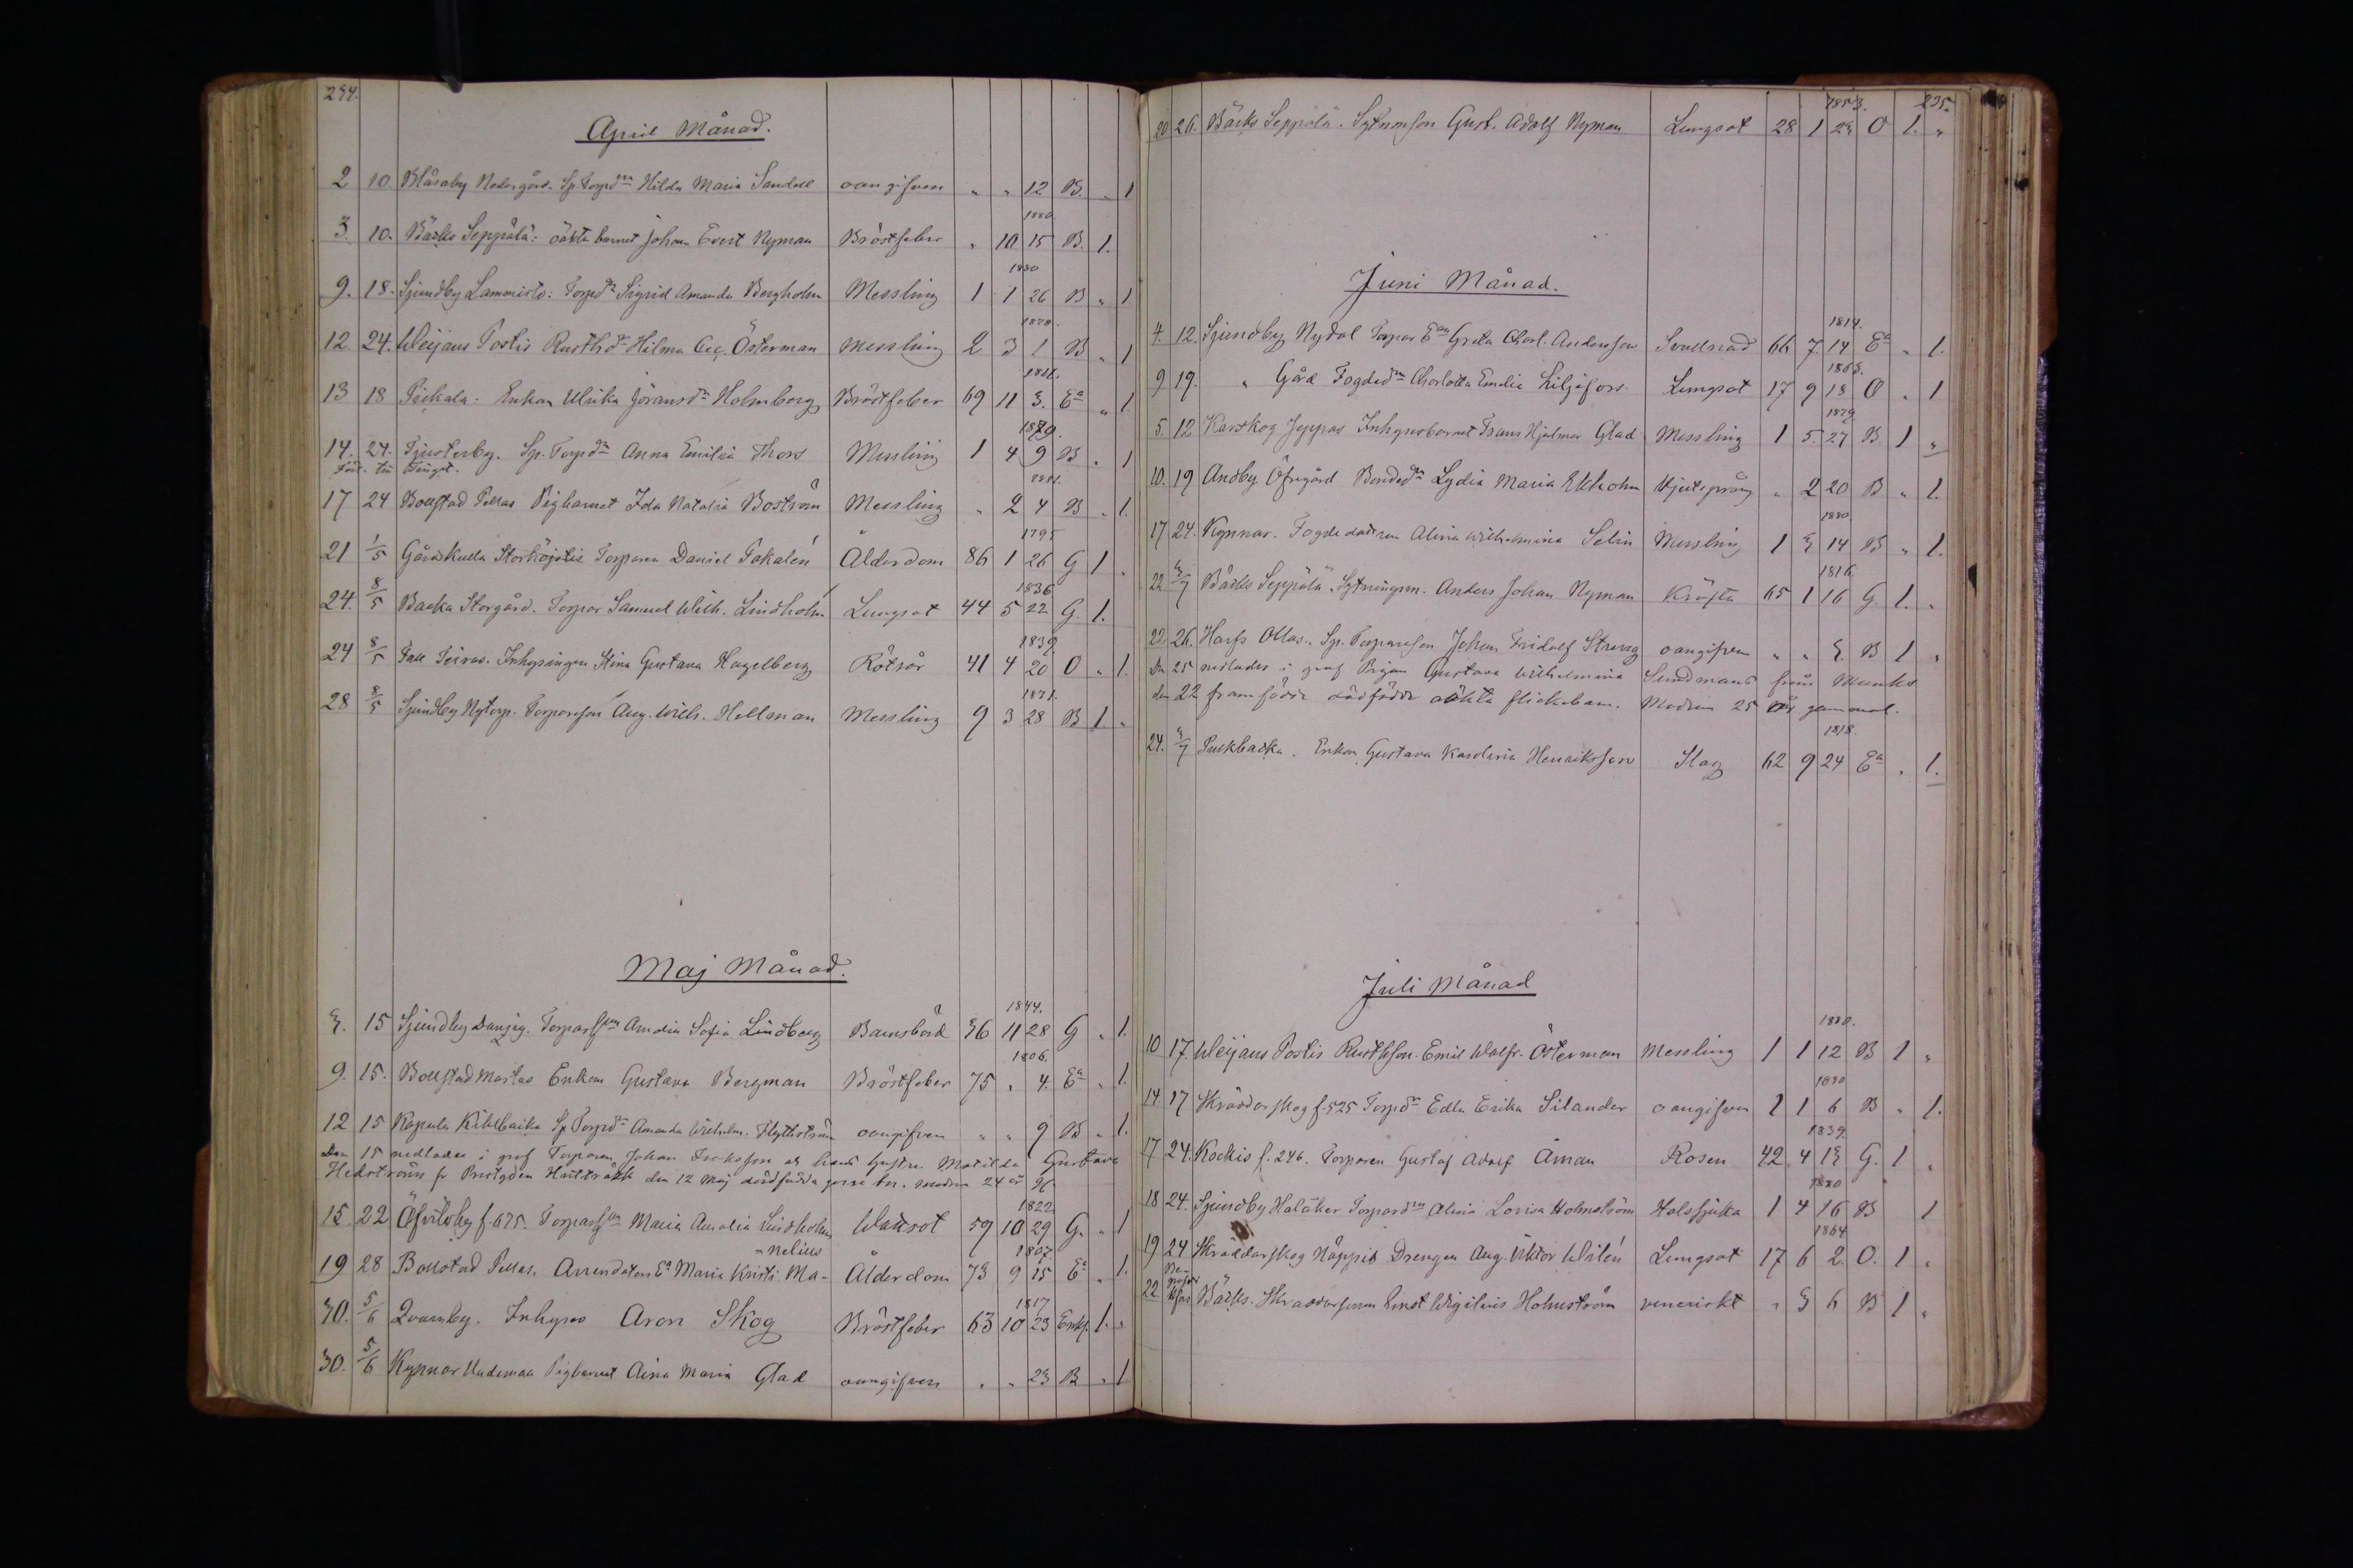 294.
April Månad.
2 10. Blåsaby Nedergård. Sp. Torpdrn Hilda Maria Sandell oangifven " " 12 B. " 1
1880
3. 10. Bäcks Seppälä: oäkta barnet Johan Evert Nyman Bröstfeber " 10 15 B. 1.
1880
9. 18. Sjundby Lammisto: Torpdr Sigrid Amanda Bergholm Messling 1 1 26 B " 1
1879.
12 24. Weijans Postis Rusthdr Hilma Cec. Österman Messling 2 3 1 B " 1
13 18 Pickala: Enkan Ulrika Göransdr Holmberg Bröstfeber 69 11 3. Ea " 1
1879.
14. 24. Tjusterby. Sp. Torpdr Anna Emilia Thors Messling 1 4 9 B " 1
1881.
17 24 Bollstad Pellas Pigbarnet Ida Natalia Boström Messling " 2 4 B " 1.
1795
21 1/5 Gårdskulla Storköjolis Torparen Daniel Takalén Ålderdom 86 1 26 G 1 "
1836
24. 8/5 Backa Storgård. Torpar Samuel Wilh. Lindholm Lungsot 44 5 22 G. 1.
1839
24 8/5 Fall Peiras. Inhysingen Stina Gustava Hagelberg Rötsår 41 4 20 O " 1.
1871.
28 8/5 Sjundby Nytorp. Torpareson Aug. Wilh. Hellman Messling 9 3 28 B 1 "
Maj Månad.
1844.
3. 15 Sjundby Danzig. Torparhun Amalia Sofia Lindberg Barnsbörd 36 11 28 G " 1.
1806.
9. 15. Bollstad Martas Enkan Gustava Bergman Bröstfeber 75 " 4. Ea " 1.
12 15 Kapula Sp Torpdr Amanda Wilhelm. oangifven " " 9 B " 1.
Den 15 nedlades i graf Torparen Johan och hans hustru Matilda Gustava
Hedströms fr den 12 Maj dödfödda gosse bn. modren 24 år
1822
15 22 f. 675. Torparhun Maria Amalia Lindholm Wattsot 59 10 29 G. " 1
=nelius 1807
19 28 Bollstad Pellas. Arrendators Ea Maria Kristi. Ma- Ålderdom 73 9 15 Ea " 1.
1817
30. 5/6 Qvarnby. Inhyses Aron Skog Bröstfeber 63 10 23 Enkl. 1. "
30. 5/6 Kypnar Uudemaa Pigbarnet Aina Maria Glad oangifven " " 23 B " 1
1853. 295.
20 26. Bäcks Seppälä. Sytnmson Gust. Adolf Nyman Lungsot 28 1 23 O 1. "
Juni Månad.
1814.
4. 12. Sjundby Nydal Torpar Ean Greta Charl. Andersson Svullnad 66 7 14 Ea " 1.
1863.
9 19. " Gård Fogdedrn Charlotta Emelie Liljefors. Lungsot 17 9 18 O " 1
1879
5. 12 Karskog Jeppas Inhysesbarnet Frans Hjalmar Glad Messling 1 5 27 B 1 "
10. 19 Andby Öfvergård Bondedrn Lydia Maria Ekholm Utslag " 2 20 B " 1.
1880
17 24. Kypnar. Fogdedottren Alina Wilhelmina Selin Messling 1 3 14 B " 1.
1816.
22 3/7 Bäcks Seppälä. Sytningsm. Anders Johan Nyman Kräfta 65 1 16 G. 1. "
22 26. Harfs Ollas. Sp. Torpareson Johan Fridolf Strang oangifven " " 3. B 1 "
Den 25 nedlades i graf Pigan Gustava Wilhelmina Sundmans från Munks
den 22 framfödda dödfödda oäkta flickebarn. Modren 25 år gammal.
1818.
24. 3/7 Purkbacka. Enkan Gustava Karolina Henriksson Slag 62 9 24 Ea " 1.
Juli Månad
1880.
10 17. Weijans Postis Rusthson. Emil Walfr. Österman Messling 1 1 12 B 1 "
1880
14 17 Skräddarskog f. 525 Torpdr Edla Erika Silander oangifven 1 1 6 B " 1.
1839
17 24. Kockis f. 246. Torparen Gustaf Adolf Åman Rosen 42 4 13 G. 1 "
1880
18 24. Sjundby Holåker Torpardrn Alma Lovisa Holmström Halssjuka 1 4 16 B 1
1864
19 24 Skräddarskog Näppis Drengen Aug. Viktor Widén Lungsot 17 6 2. O. 1 "
22 Bäcks. Skräddaresonen Ernst Holmström veneriskt " 3 6 B 1 "